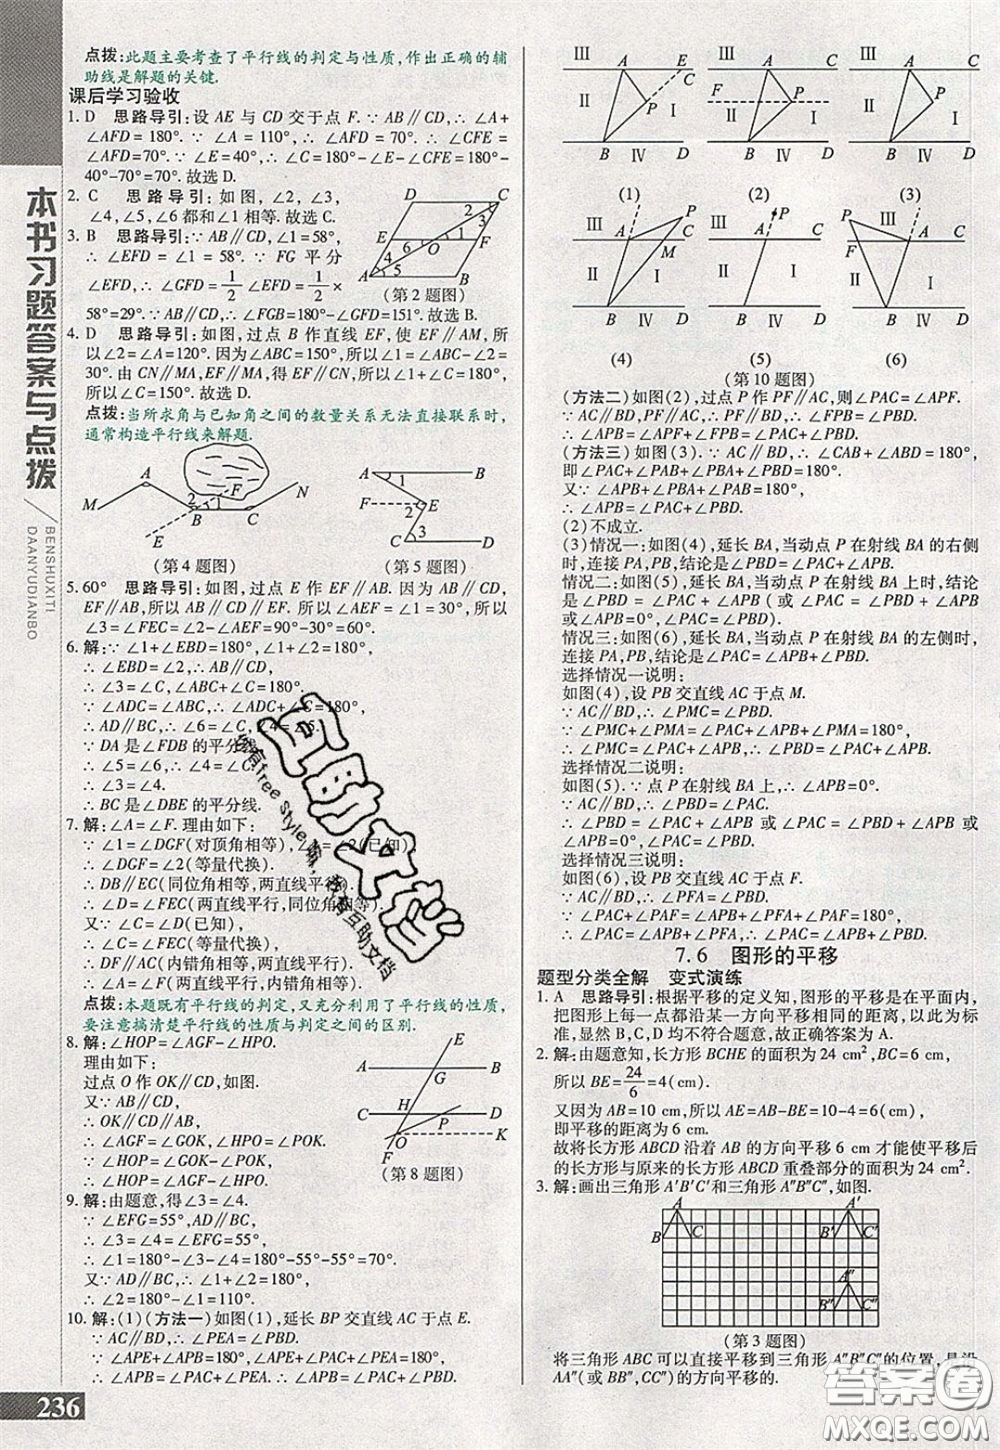 点拨:此题主要考查了平行线的判定与性质,作出正确的辅
助线是解题的关键.
课后学习验收
1. D　思路导引:设 AE 与 CD 交于点 F.∵AB∥CD,∴∠A+
∠AFD=180°.∵∠A=110°,∴∠AFD=70°.∴∠CFE=
∠AFD=70°.∵∠E=40°,∴∠C=180°-∠E-∠CFE=180°-
40°-70°=70°.故选 D.
2. C　思路导引:如图,∠2,∠3,
∠4,∠5,∠6 都和∠1 相等.故选 C.
3. B　思路导引:∵AB∥CD,∠1=58°,
∴∠EFD=∠1=58°.∵FG 平分
∠EFD,∴∠GFD=1/2∠EFD=1/2×
58°=29°.∵AB∥CD,∴∠FGB=180°-∠GFD=151°.故选 B.
(第 2 题图)
4. D　思路导引:如图,过点 B 作直线 EF,使 EF∥AM,所
以∠2=∠A=120°.因为∠ABC=150°,所以∠1=150°-120°=
30°.由 CN∥MA,EF∥MA,得 CN∥EF,所以∠1+∠C=180°.
所以∠C=150°.故选 D.
点拨:当所求角与已知角之间的数量关系无法直接联系时,
通常构造平行线来解题.
M A E B F C N 1 2
(第 4 题图)
A B F E C D 1 2 3
(第 5 题图)
5. 60°　思路导引:如图,过点 E 作 EF∥AB.因为 AB∥CD,
EF∥AB,所以 AB∥CD∥EF.所以∠2=∠1=30°.所以
∠3=∠FEC=∠AEC-∠2=90°-30°=60°.
6. 解:∵∠1+∠2=180°,∠1+∠EBD=180°,
∴∠EBD=∠2,∴AB∥CD,
∴∠3=∠C,∠ABC+∠C=180°.
∵∠ADC=∠ABC,∴∠ADC+∠C=180°.
∴AD∥BC,∴∠6=∠C,∠4=∠5.
∵DA 是∠FDB 的平分线,
∴∠5=∠6,
∴∠3=∠4.
∴BC 是∠DBE 的平分线.
7. 解:∠A=∠F.理由如下:
∵∠1=∠DGF(对顶角相等),∠1=∠2(已知),
∴∠DGF=∠2(等量代换).
∴DB∥EC(同位角相等,两直线平行).
∴∠D=∠FEC(两直线平行,同位角相等).
又∵∠C=∠D(已知),
∴∠FEC=∠C(等量代换).
∴DF∥AC(内错角相等,两直线平行).
∴∠A=∠F(两直线平行,内错角相等).
点拨:本题既有平行线的判定,又充分利用了平行线的性质,
要注意搞清楚平行线的性质与判定之间的区别.
8. 解:∠HOP=∠AGF-∠HPO.
理由如下:
过点 O 作 OK∥CD,如图.
又∵AB∥CD,
∴OK∥CD∥AB,
∴∠AGF=∠GOK,∠HPO=∠POK.
∵∠HOP=∠GOK-∠POK,
∴∠HOP=∠AGF-∠HPO.
(第 8 题图)
9. 解:由题意,得∠3=∠4.
∵∠EFG=55°,AD∥BC,
∴∠3=∠4=∠EFG=55°,
∴∠1=180°-∠3-∠4=180°-55°-55°=70°.
又∵AD∥BC,∴∠1+∠2=180°,
∴∠2=180°-∠1=110°.
10. 解:(1)(方法一)如图(1),延长 BP 交直线 AC 于点 E.
∵AC∥BD,∴∠PEA=∠PBD.
∵∠APE+∠APB=180°,∠APE+∠PAE+∠PEA=180°,
∴∠APB=∠PAE+∠PEA,∴∠APB=∠PAC+∠PBD.
(1) (2) (3)
(4) (5) (6)
(第 10 题图)
(方法二)如图(2),过点 P 作 PF∥AC,则∠PAC=∠APF.
∵AC∥BD,PF∥AC,∴PF∥BD,∴∠FPB=∠PBD.
∴∠APB=∠APF+∠FPB=∠PAC+∠PBD.
(方法三)如图(3).∵AC∥BD,∴∠CAB+∠ABD=180°,
即∠PAC+∠PAB+∠PBA+∠PBD=180°.
又∵∠APB+∠PBA+∠PAB=180°,
∴∠APB=∠PAC+∠PBD.
(2)不成立.
(3)情况一:如图(4),延长 BA,当动点 P 在射线 BA 的右侧
时,连接 PA,PB,结论是∠PBD=∠PAC+∠APB.
情况二:如图(5),延长 BA,当动点 P 在射线 BA 上时,结论
是∠PBD=∠PAC+∠APB(或∠PAC=∠PBD+∠APB 或
∠APB=0°,∠PAC=∠PBD).
情况三:如图(6),延长 BA,当动点 P 在射线 BA 的左侧时,
连接 PA,PB,结论是∠PAC=∠APB+∠PBD.
选择情况一说明:
如图(4),设 PB 交直线 AC 于点 M.
∵AC∥BD,∴∠PMC=∠PBD.
∵∠PMC+∠PMA=∠PAC+∠APB+∠PMA=180°,
∴∠PMC=∠PAC+∠APB,∴∠PBD=∠PAC+∠APB.
选择情况二说明:
如图(5).∵点 P 在射线 BA 上,∴∠APB=0°.
∵AC∥BD,∴∠PBD=∠PAC.
∴∠PBD=∠PAC+∠APB 或∠PAC=∠PBD+∠APB
或∠APB=0°,∠PAC=∠PBD.
选择情况三说明:
如图(6),设 PB 交直线 AC 于点 F.
∵AC∥BD,∴∠PFA=∠PBD.
∵∠PAC+∠PAF=∠APB+∠PFA+∠PAF=180°,
∴∠PAC=∠APB+∠PFA,∴∠PAC=∠APB+∠PBD.
7.6　图形的平移
题型分类全解　变式演练
1. A　思路导引:根据平移的定义知,图形的平移是在平面内,
把图形上每一点都沿某一方向平移相同的距离,以此为标
准,显然 B,C,D 均不符合题意,故正确答案为 A.
2. 解:由题意知,长方形 BCHE 的面积为 24 cm²,BC=6 cm,
所以 BE=24/6=4(cm).
又因为 AB=10 cm,所以 AE=AB-BE=10-4=6(cm),
即平移的距离为 6 cm.
故将长方形 ABCD 沿着 AB 的方向平移 6 cm 才能使平移后
的长方形与原来的长方形 ABCD 重叠部分的面积为 24 cm².
3. 解:画出三角形 A′B′C′和三角形 A″B″C″,如图.
(第 3 题图)
将三角形 ABC 可以直接平移到三角形 A″B″C″的位置,是沿
AA″(或 BB″,CC″)的方向平移的.
本书习题答案与点拨
BENSHUXITI
DAANYUDIANBO
236
答案圈
MXQE.COM